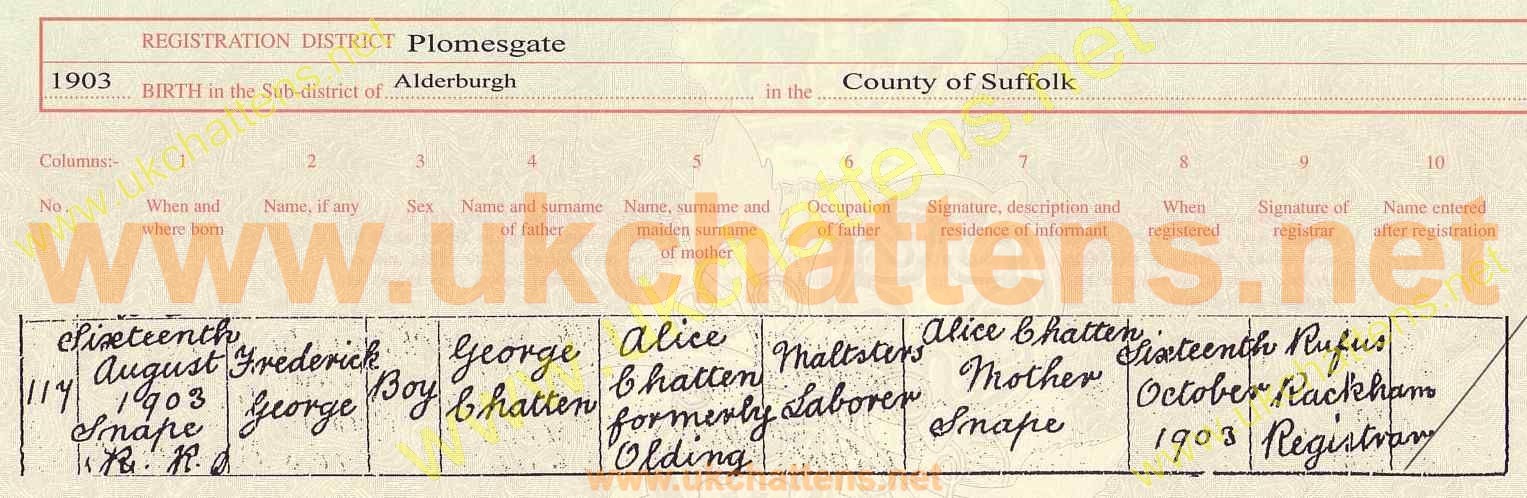 REGISTRATION DISTRICT Plomesgate
1903 BIRTH in the Sub-district of Alderburgh in the County of Suffolk
Columns:- 1 2 3 4 5 6 7 8 9 10
No. When and where born Name, if any Sex Name and surname of father Name, surname and maiden surname of mother Occupation of father Signature, description and residence of informant When registered Signature of registrar Name entered after registration
www.ukchattens.net
117
Sixteenth
August
1903
Snape
R. R. D
Frederick
George
Boy
George
Chatten
Alice
Chatten
formerly
Olding
Maltsters
Laborer
Alice Chatten
Mother
Snape
Sixteenth
October
1903
Rufus
Rackham
Registrar
www.ukchattens.net
www.ukchattens.net
www.ukchattens.net
www.ukchattens.net
www.ukchattens.net